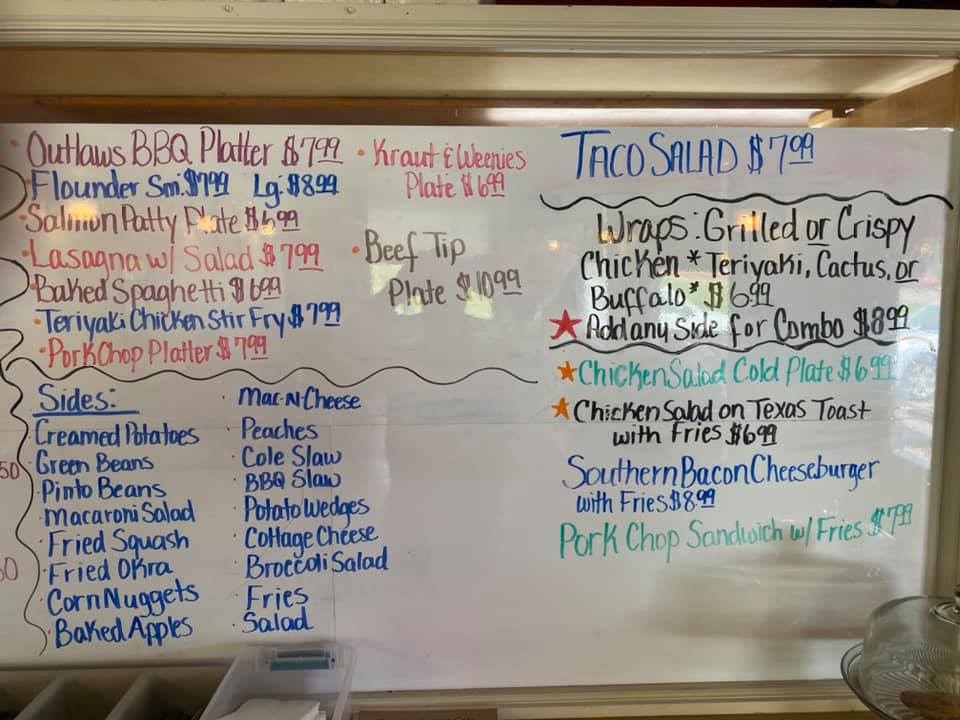 Outlaws BBQ Platter $7.99
Flounder Sm. $7.99 Lg. $8.99
Salmon Patty Plate $6.99
Lasagna w/ Salad $7.99
Baked Spaghetti $6.99
Teriyaki Chicken Stir Fry $7.99
Pork Chop Platter $7.99
Kraut & Weenies
Plate $6.99
Beef Tip
Plate $10.99
Sides:
Creamed Potatoes
Green Beans
Pinto Beans
Macaroni Salad
Fried Squash
Fried Okra
Corn Nuggets
Baked Apples
Mac-N-Cheese
Peaches
Cole Slaw
BBQ Slaw
Potato Wedges
Cottage Cheese
Broccoli Salad
Fries
Salad
Taco Salad $7.99
Wraps: Grilled or Crispy
Chicken * Teriyaki, Cactus, or
Buffalo * $6.99
★ Add any Side for Combo $8.99
★ Chicken Salad Cold Plate $6.99
★ Chicken Salad on Texas Toast
with Fries $6.99
Southern Bacon Cheeseburger
with Fries $8.99
Pork Chop Sandwich w/ Fries $7.99